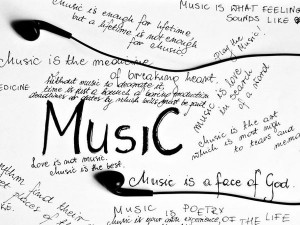 music is enough for lifetime
but a lifetime is not enough
for music
MUSIC IS WHAT FEELING
SOUNDS LIKE
Play the
Music!
Music is the medicine
of breaking heart.
MEDICINE
Without music to decorate it,
time is just a bunch of boring production
deadlines or dates by which bills must be paid
music is love
in search
of a word
MUSIC
music is the art
which is most nigh
to tears and
memo
Love is not music.
music is the best.
Music is a face of God.
find their
pieces of the
MUSIC IS POETRY
music is your own experience,
OF THE LIFE